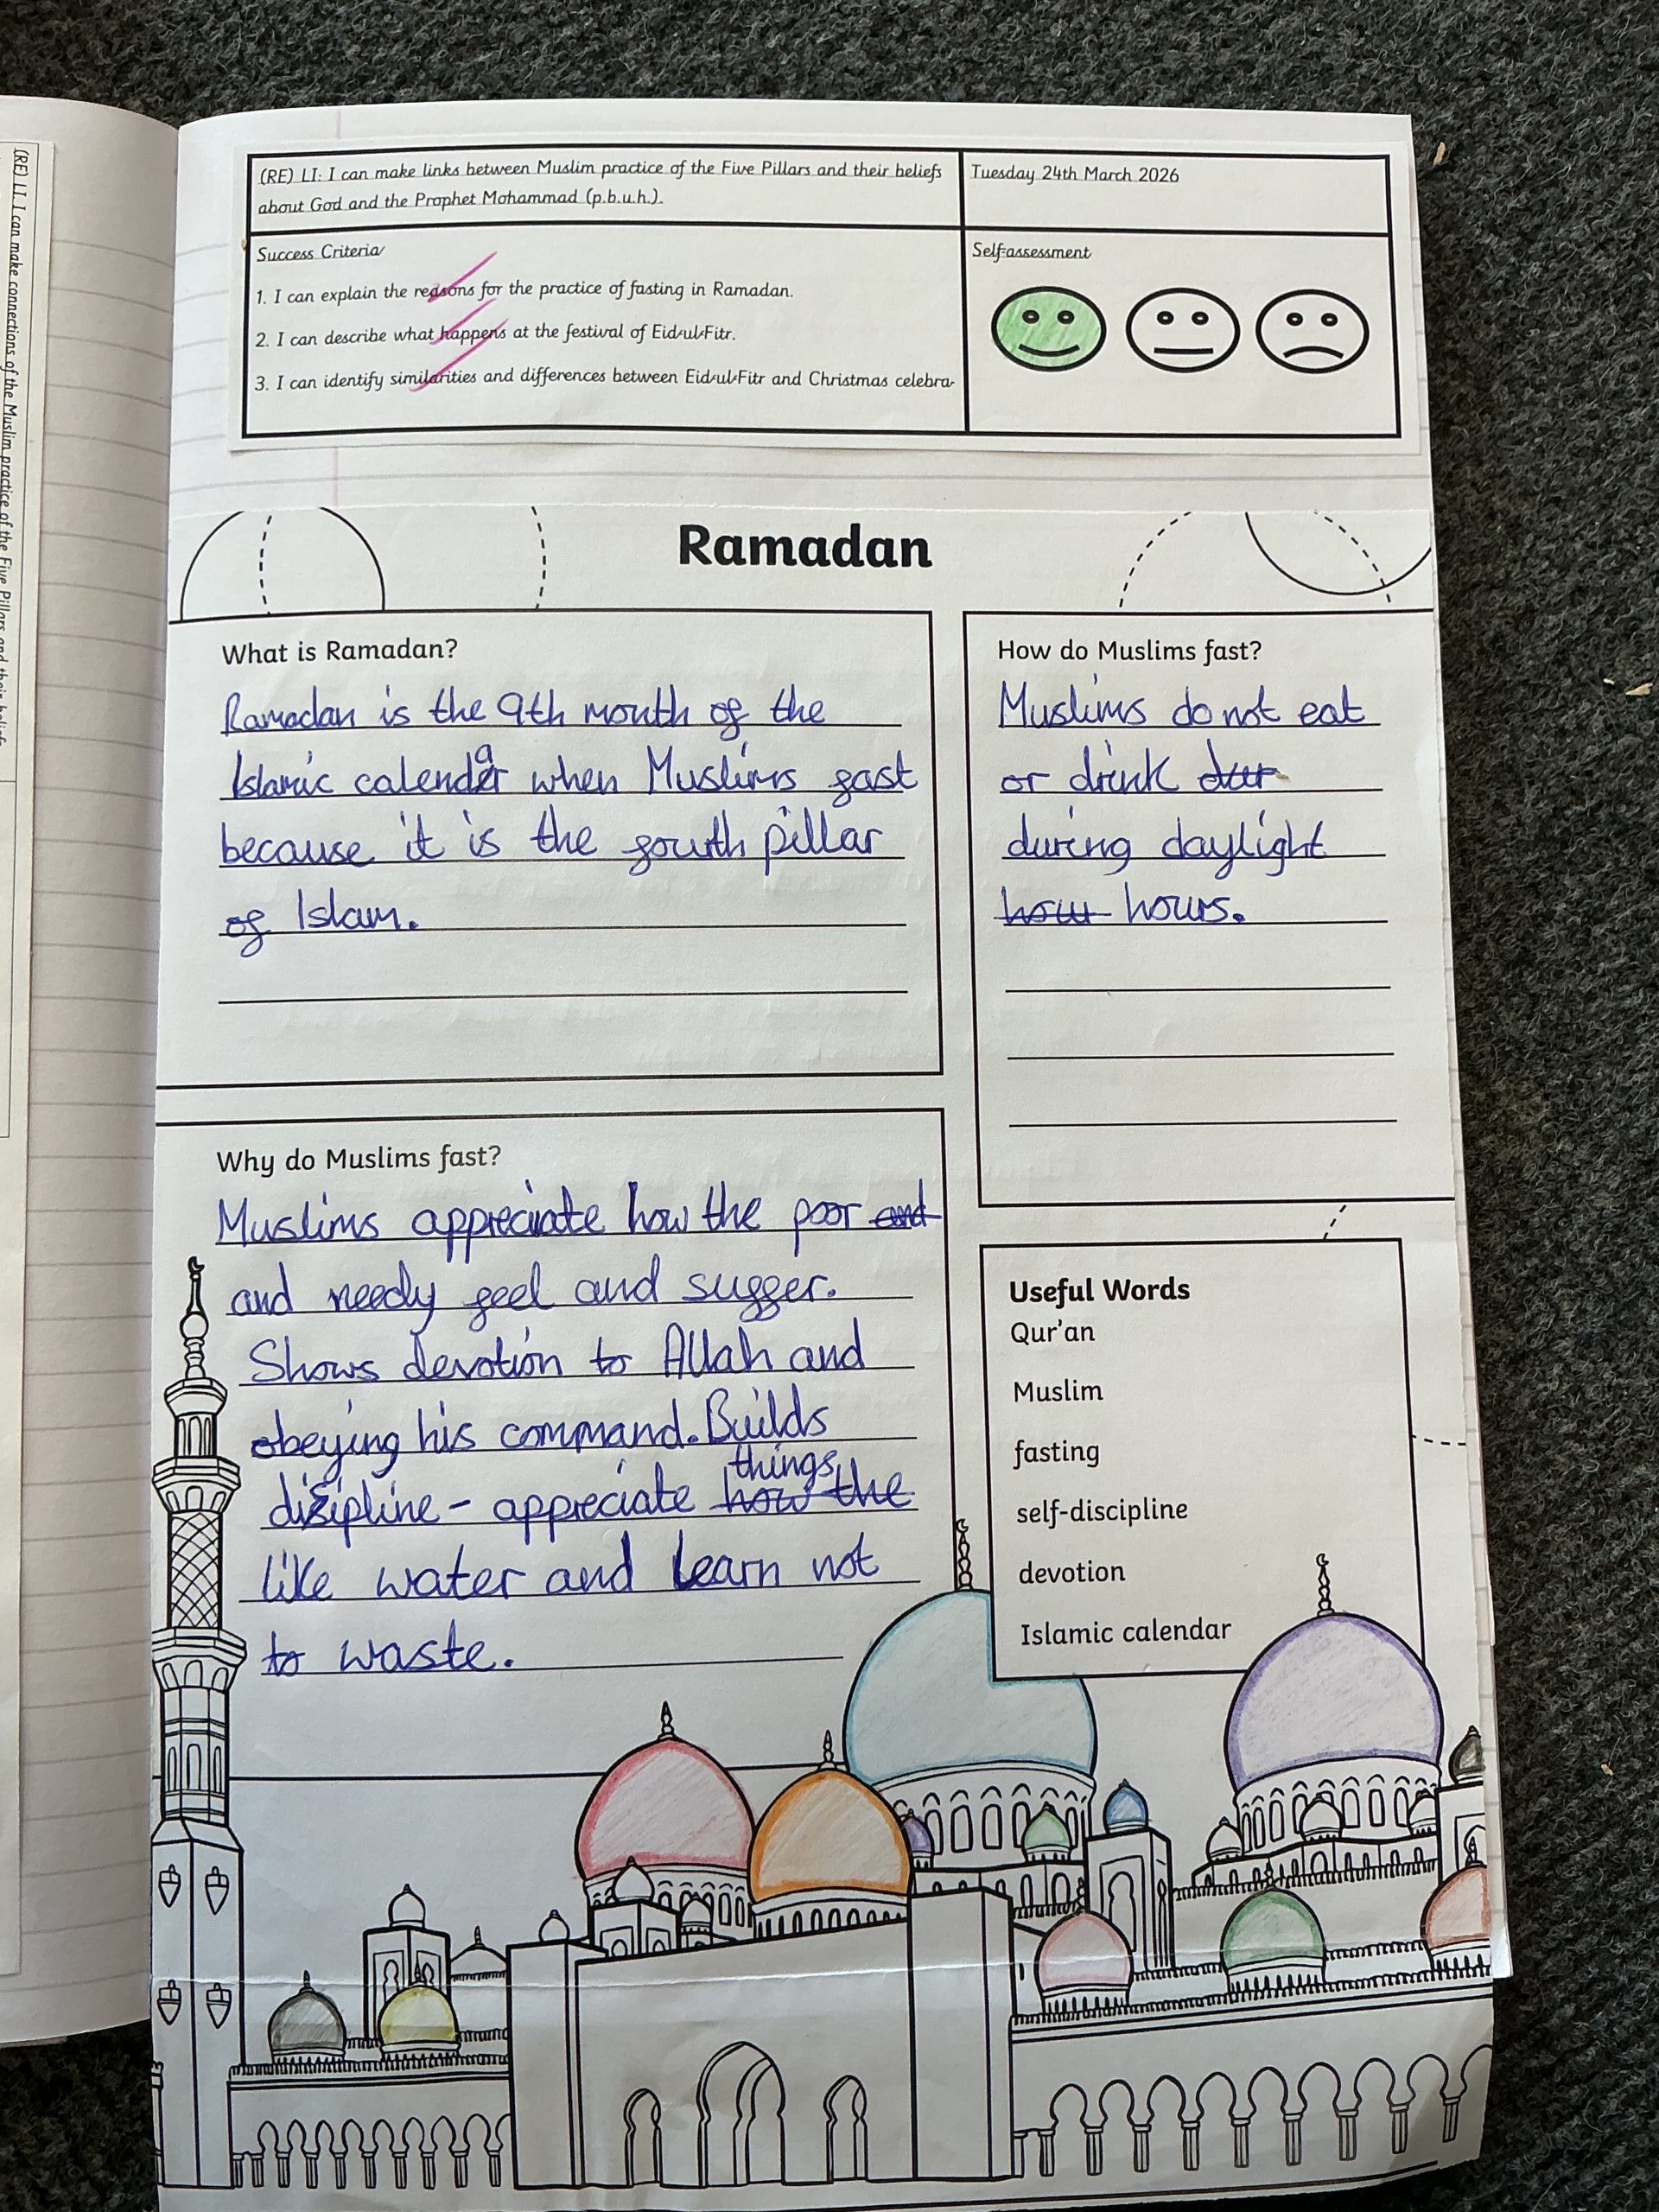 (RE) LI: I can make links between Muslim practice of the Five Pillars and their beliefs
about God and the Prophet Mohammad (p.b.u.h.).
Tuesday 24th March 2026
Success Criteria
1. I can explain the reasons for the practice of fasting in Ramadan.
2. I can describe what happens at the festival of Eid-ul-Fitr.
3. I can identify similarities and differences between Eid-ul-Fitr and Christmas celebra
Self-assessment
Ramadan
What is Ramadan?
Ramadan is the 9th month of the
Islamic calendar when Muslims fast
because it is the fourth pillar
of Islam.
How do Muslims fast?
Muslims do not eat
or drink
during daylight
hours.
Why do Muslims fast?
Muslims appreciate how the poor and
and needy feel and suffer.
Shows devotion to Allah and
obeying his command. Builds
discipline - appreciate how the things
like water and learn not
to waste.
Useful Words
Qur'an
Muslim
fasting
self-discipline
devotion
Islamic calendar
(RE) LI: I can make connections of the Muslim practice of the Five Pillars and their beliefs